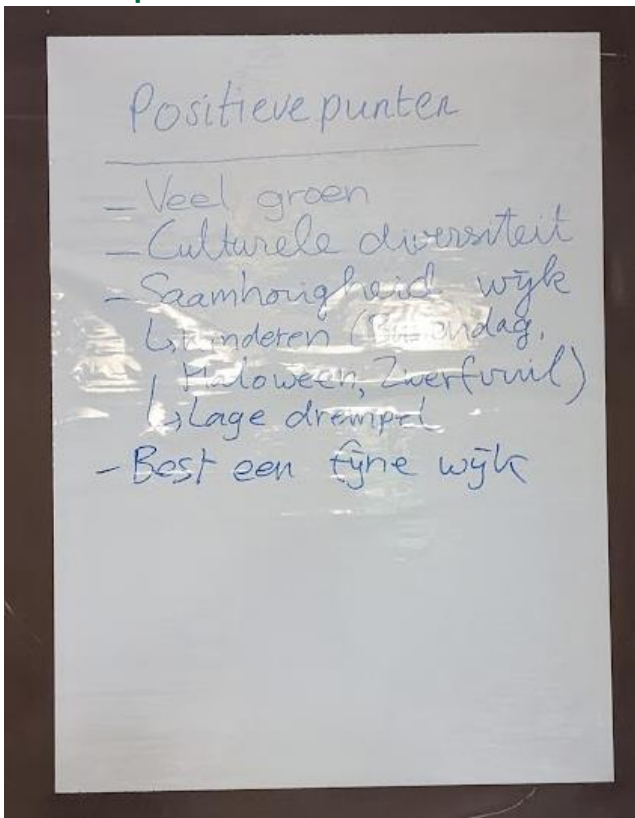 Positieve punten
- Veel groen
- Culturele diversiteit
- Saamhorigheid wijk
↳ kinderen (
Haloween, Zwerfvuil)
↳ Lage drempel
- Best een fijne wijk